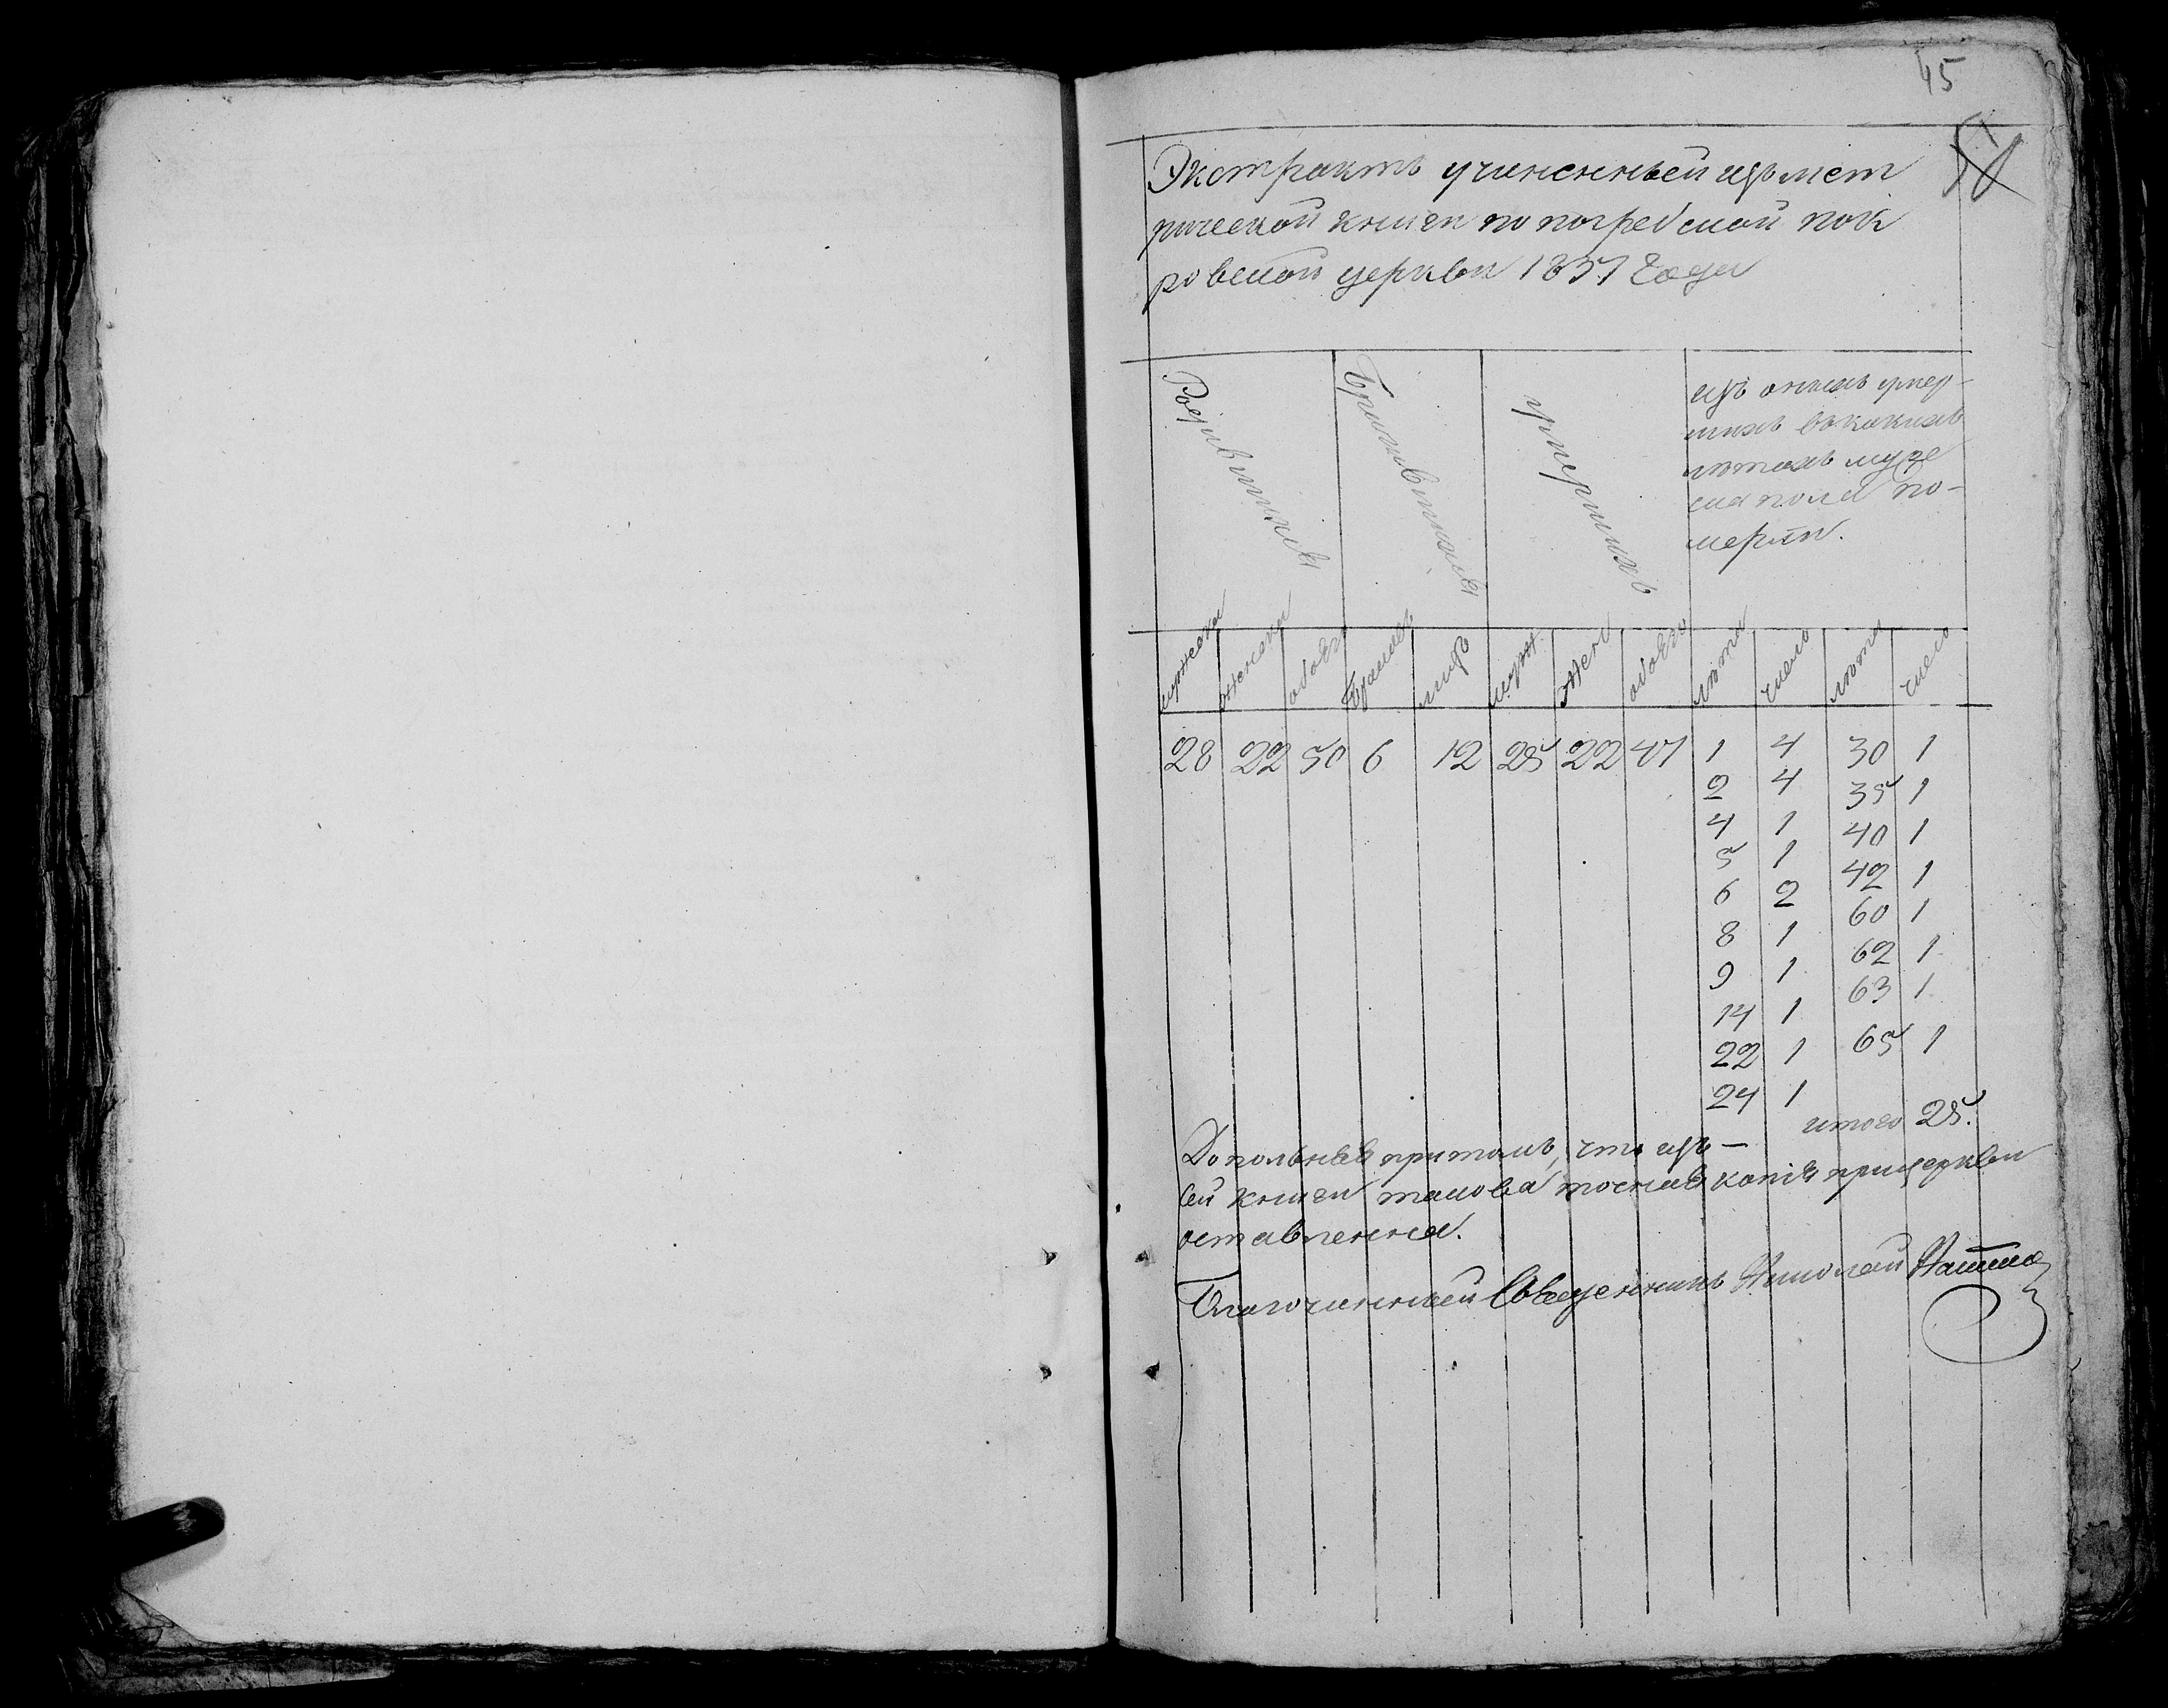 45
Экстрактъ учиненный изъ мет
рической книги по погребской пок
ровской церкви 1837 года
Родившихся
Бракосочетавшихся
умершихъ
изъ оныхъ умер-
шихъ въ какихъ
лѣтахъ муже
ска пола по-
мерли.
мужеска женска обоего браковъ лицъ муж жен обоего лѣта число лѣта число
28 22 50 6 12 25 22 47 1 4 30 1
2 4 35 1
4 1 40 1
5 1 42 1
6 2 60 1
8 1 62 1
9 1 63 1
14 1
22 1 65 1
24 1
итого 25.
Дополняя притомъ, что изъ —
сей книги такова точная копія при церкви
оставленна.
Благочинный Священникъ Николай